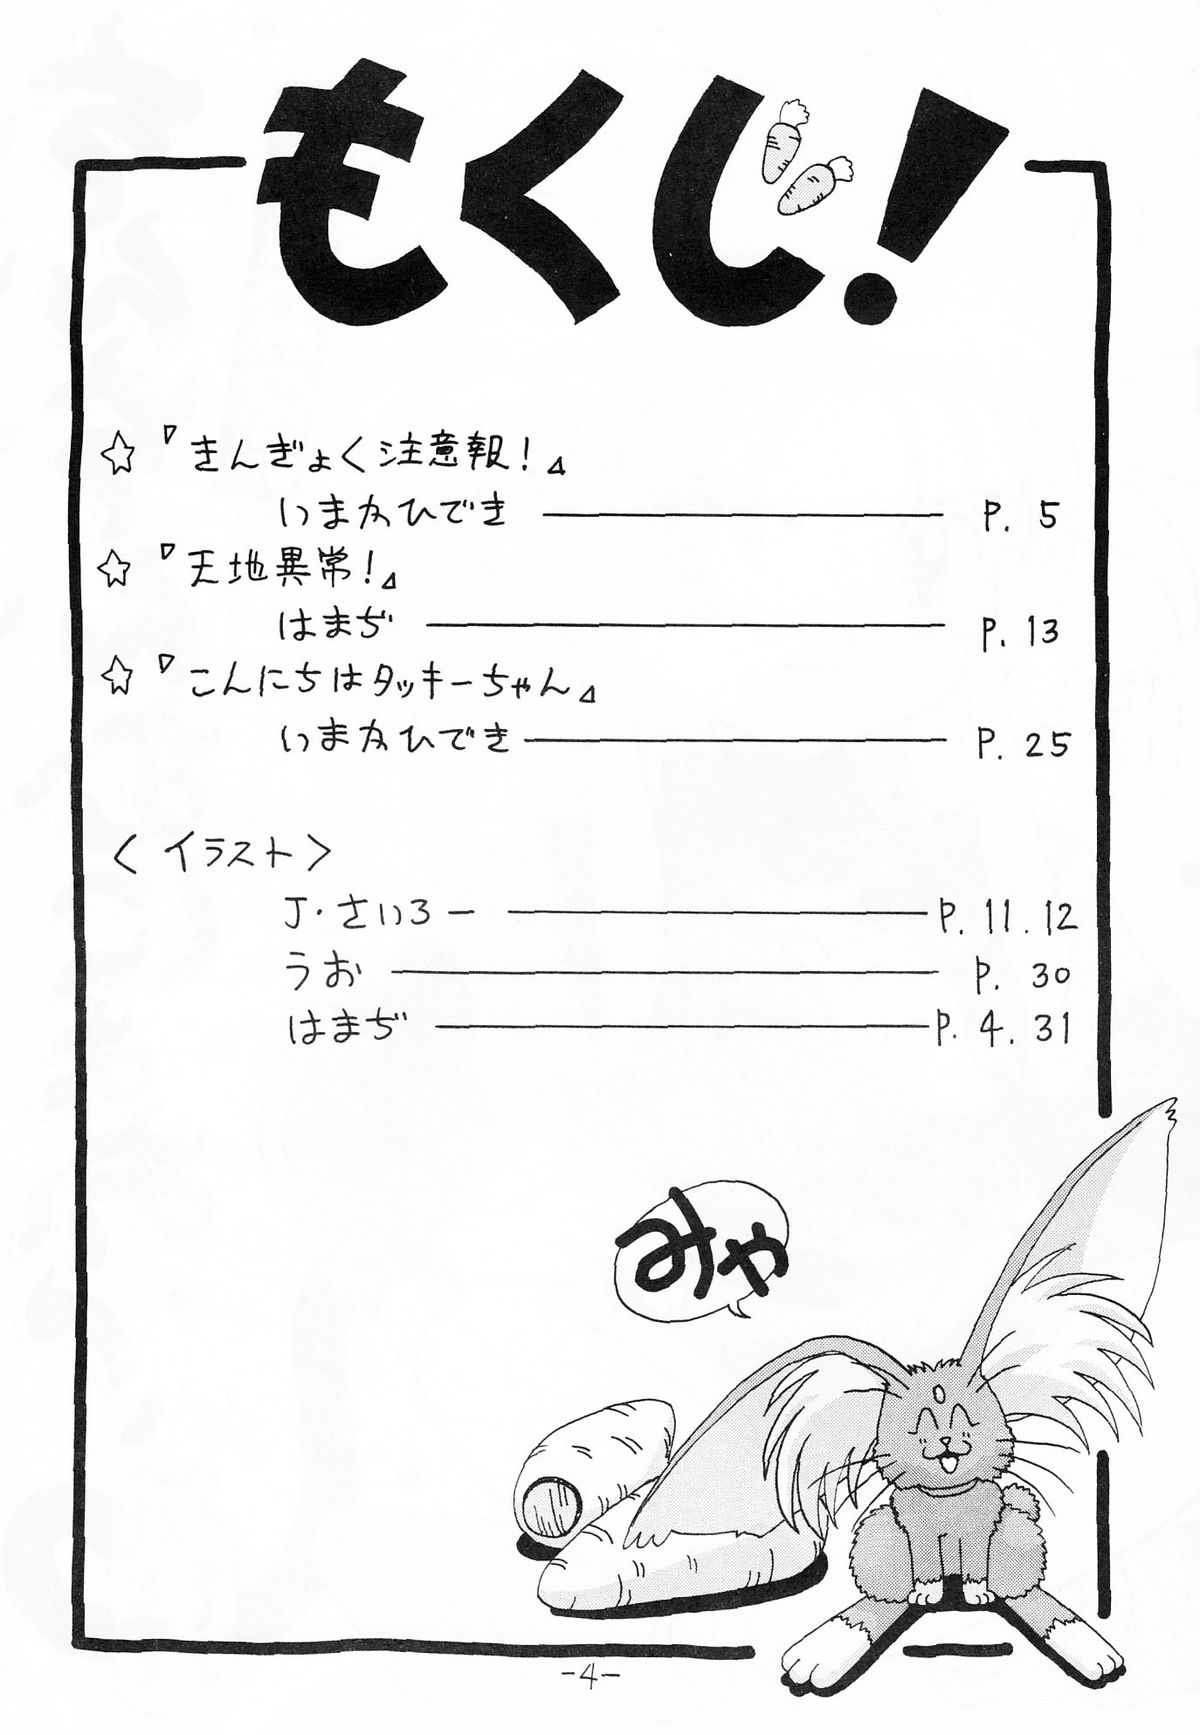 もくじ!
☆『きんぎょく注意報!』
いまかひでき ―――― P. 5
☆『天地異常!』
はまぢ ―――― P. 13
☆『こんにちはタッキーちゃん』
いまかひでき ―――― P. 25
〈イラスト〉
J・さいろー ―――― P. 11. 12
うお ―――― P. 30
はまぢ ―――― P. 4. 31
みゃ
-4-